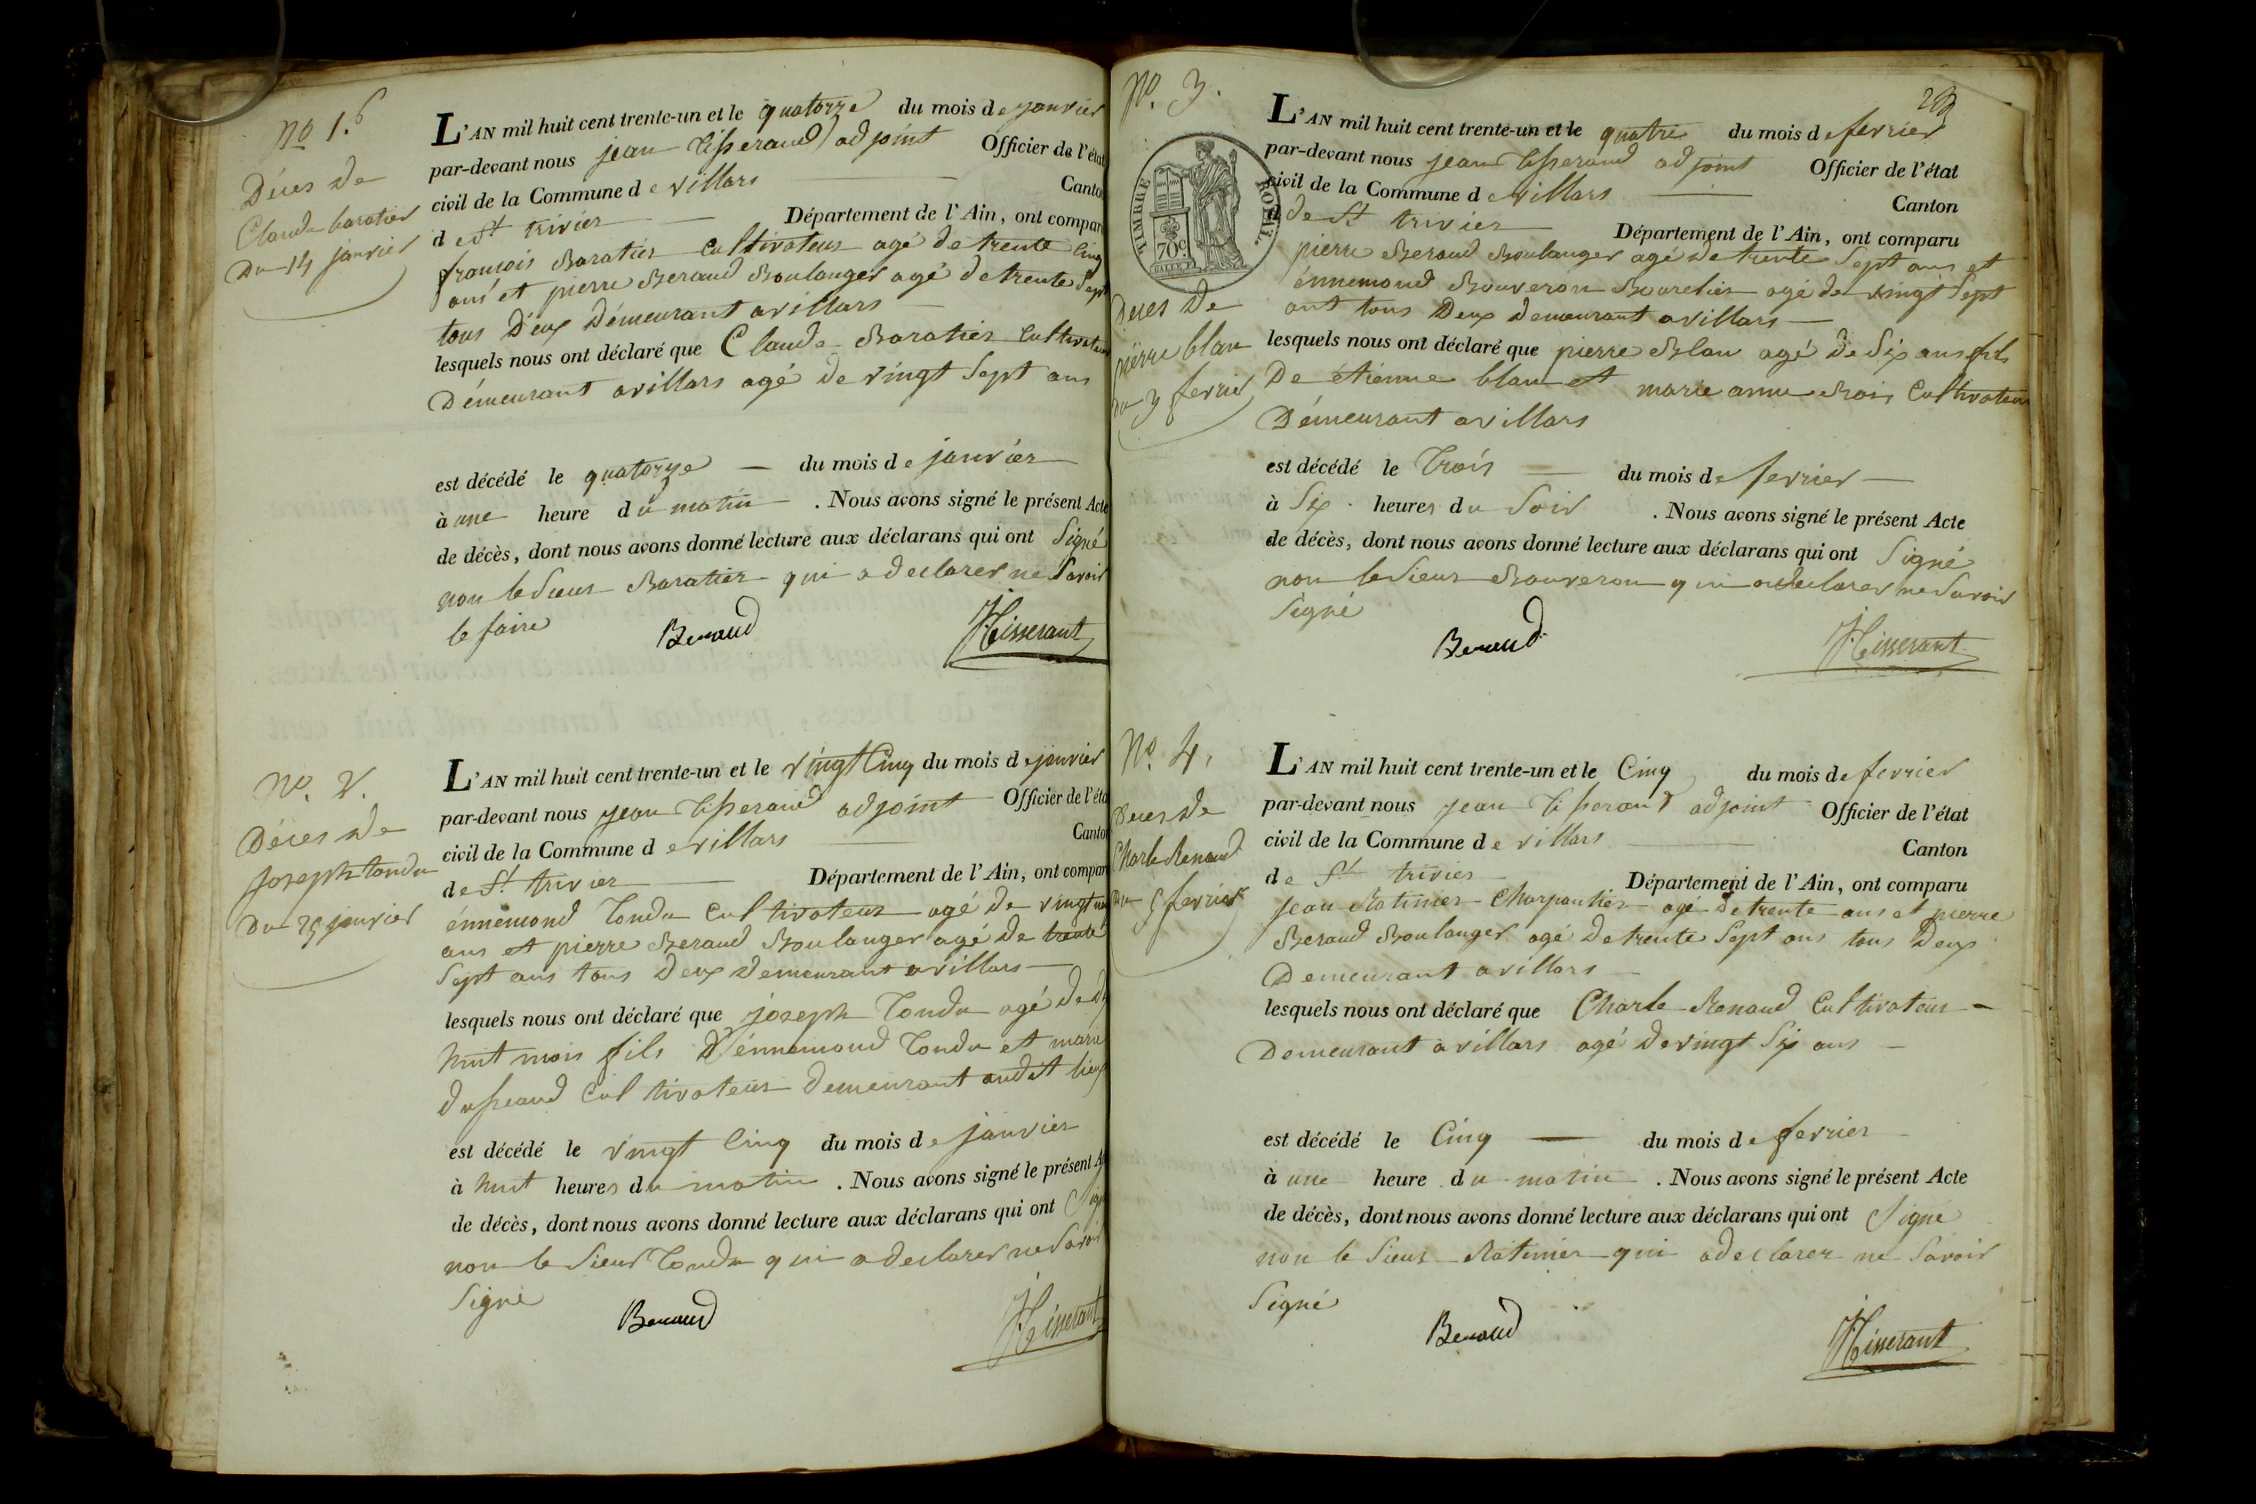 No 1.er
Décès de
Claude baratier
Du 14 janvier
L'AN mil huit cent trente-un et le quatorze du mois de janvier
par-devant nous jean tisserand adjoint Officier de l'état
civil de la Commune de villars — Canton
de St trivier — Département de l'Ain, ont comparu
francois Baratier Cultivateur agé de trente Cinq
ans et pierre Beraud Boulanger agé de trente Sept
tous Deux Démeurant a villars —
lesquels nous ont déclaré que Claude Baratier Cultivateur
Démeurant a villars agé de vingt Sept ans
est décédé le quatorze — du mois de janvier
à une heure du matin . Nous avons signé le présent Acte
de décès, dont nous avons donné lecture aux déclarans qui ont Signé
non le Sieur Baratier qui a declarer ne Savoir
le faire
Beraud JTisserant
No. 2.
Décès de
joseph tondu
Du 25 janvier
L'AN mil huit cent trente-un et le vingt Cinq du mois de janvier
par-devant nous jean tisserand adjoint Officier de l'éta
civil de la Commune de villars — Canton
de St trivier — Département de l'Ain, ont compar
énnemond Tondu Cultivateur agé de vingt
ans et pierre Beraud Boulanger agé de trente
Sept ans tous Deux demeurant a villars —
lesquels nous ont déclaré que joseph Tondu agé de
huit mois fils D'énnemond Tondu et marie
Cultivateur demeurant audit lieu
est décédé le vingt Cinq du mois de janvier
à huit heures du matin . Nous avons signé le présent A
de décès, dont nous avons donné lecture aux déclarans qui ont Sig
non le Sieur Tondu qui a declarer ne Savoir
Signé
Beraud JTisserant
No. 3.
TIMBRE ROYAL
70c.
Deces de
pierre blan
du 3 fevrier
L'AN mil huit cent trente-un et le quatre du mois de fevrier
par-devant nous jean tisserand adjoint Officier de l'état
civil de la Commune de villars — Canton
de St trivier — Département de l'Ain, ont comparu
pierre Beraud Boulanger agé de trente Sept ans et
énnemond Bouveron Bourelier agé de vingt Sept
ant tous Deux demeurant a villars —
lesquels nous ont déclaré que pierre Blan agé de Six ans fils
De étienne blan et marie anne Cultivateur
Démeurant a villars
est décédé le Trois — du mois de fevrier —
à Six heures du Soir . Nous avons signé le présent Acte
de décès, dont nous avons donné lecture aux déclarans qui ont Signé
non le Sieur Bouveron qui a declarer ne Savoir
Signé
Beraud JTisserant
No. 4.
Deces de
Charle Renaud
Du 5 fevrier
L'AN mil huit cent trente-un et le Cinq du mois de fevrier
par-devant nous jean tisserand adjoint Officier de l'état
civil de la Commune de villars — Canton
de St trivier Département de l'Ain, ont comparu
jean Ratinier Charpantier agé de trente ans et pierre
Beraud Boulanger agé de trente Sept ans tous Deux
Demeurant a villars —
lesquels nous ont déclaré que Charle Renaud Cultivateur —
Demeurant a villars agé de vingt Six ans —
est décédé le Cinq — du mois de fevrier —
à une heure du matin . Nous avons signé le présent Acte
de décès, dont nous avons donné lecture aux déclarans qui ont Signé
non le Sieur Ratinier qui a declarer ne Savoir
Signé
Beraud JTisserant